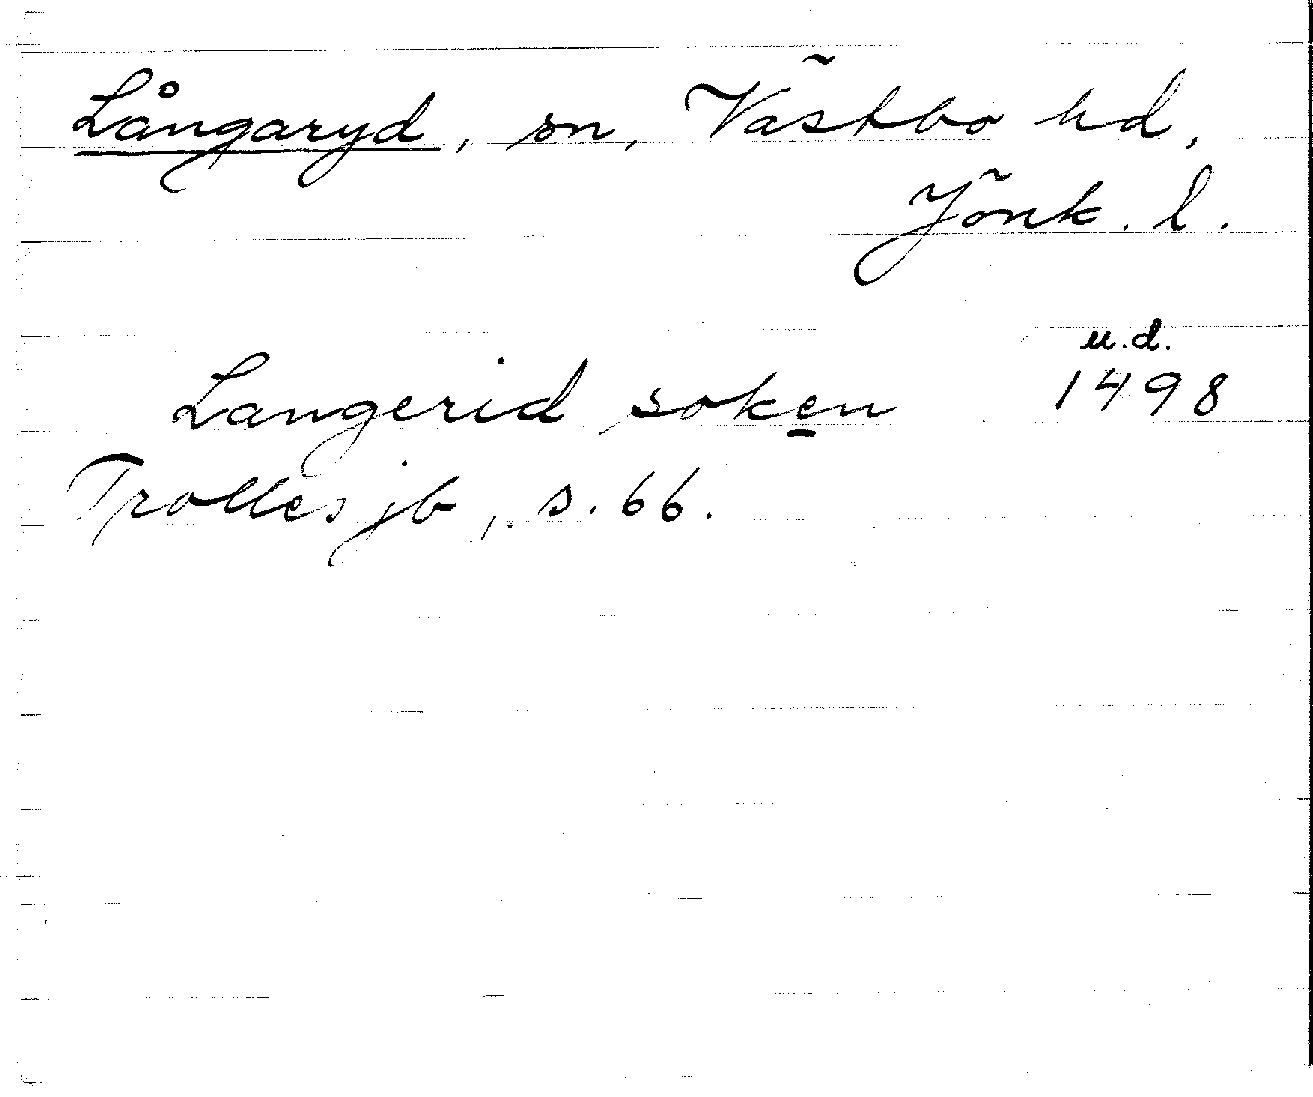 Långaryd, sn, Västbo hd,
Jönk. l.
u.d.
Langerid soken 1498
Trolles jb, s. 66.